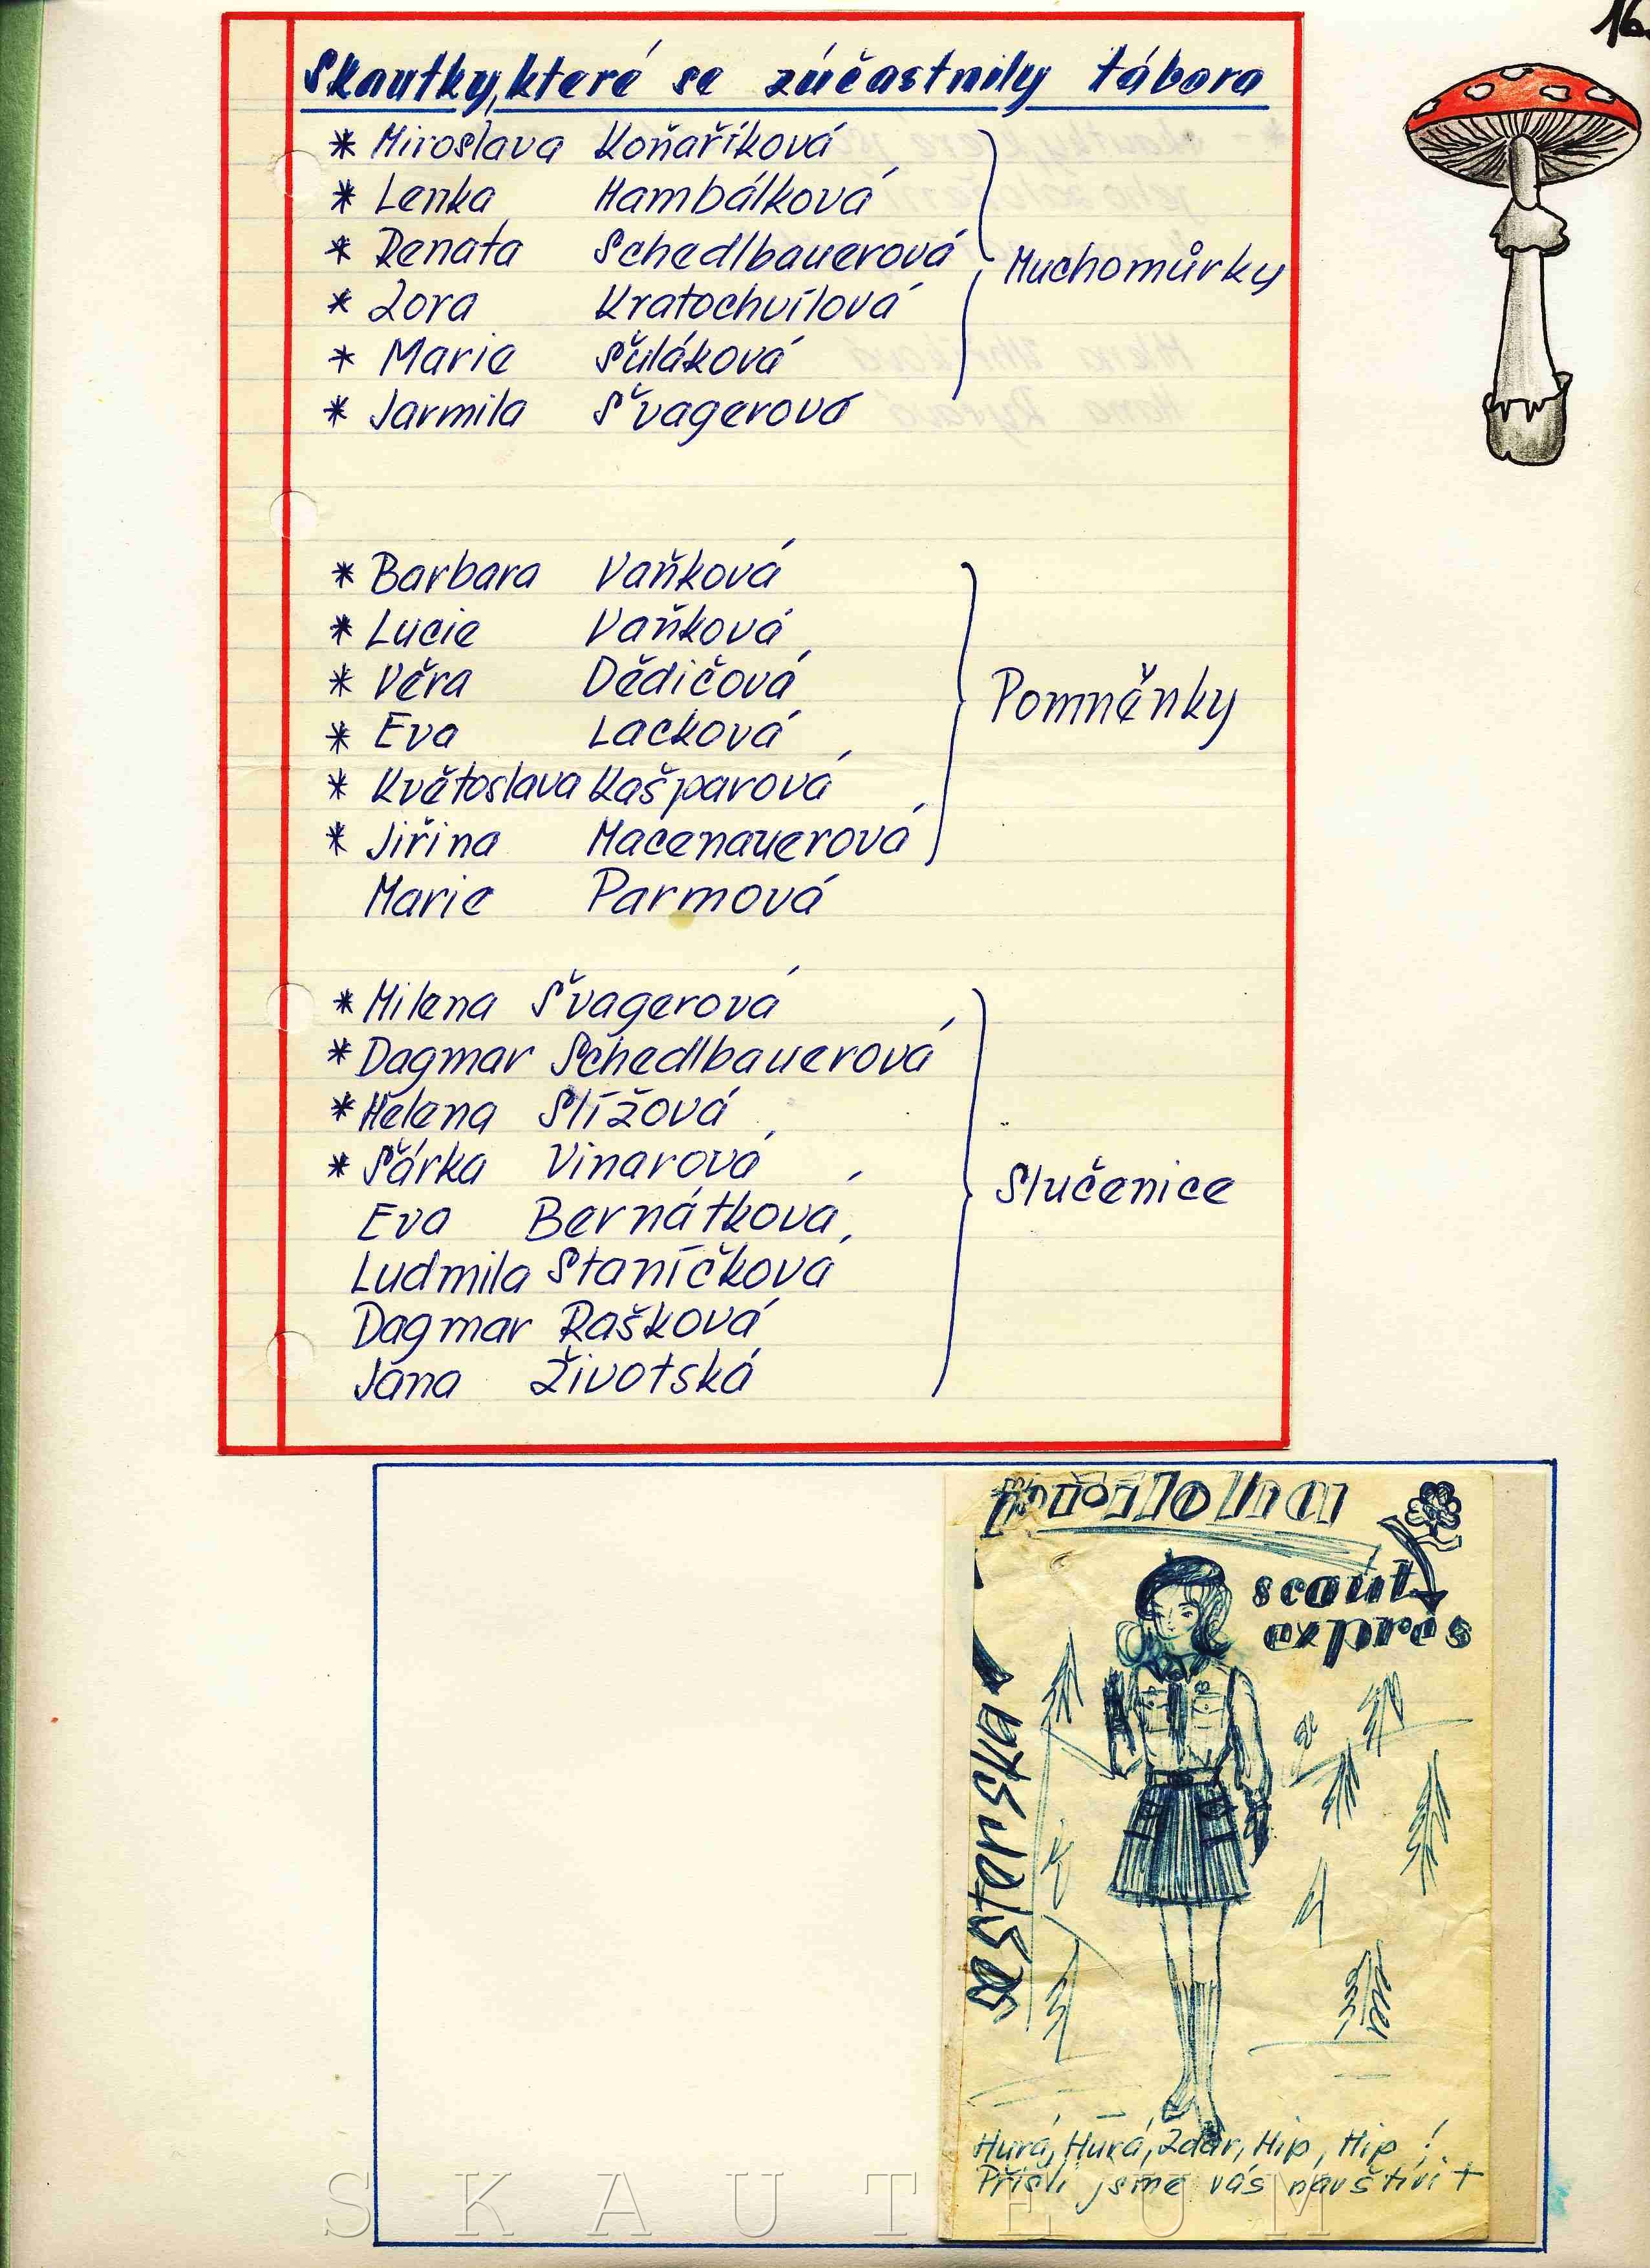 16.
Skautky, které se zúčastnily tábora
* Miroslava Koňaříková
* Lenka Hambálková
* Renata Schedlbauerová
Muchomůrky
* Zora Kratochvílová
* Marie Šuláková
* Jarmila Švagerová
* Barbara Vaňková
* Lucie Vaňková
* Věra Dědičová
Pomněnky
* Eva Lacková
* Květoslava Kašparová
* Jiřina Macenauerová
Marie Parmová
* Milena Švagerová
* Dagmar Schedlbauerová
* Helena Slížová
* Šárka Vinarová
Slučenice
Eva Bernátková
Ludmila Staníčková
Dagmar Rašková
Jana Životská
příloha
scout
expres
sesteriska
Hurá, Hurá, Zdar, Hip, Hip!
Přišli jsme vás navštívit
SKAUTEUM